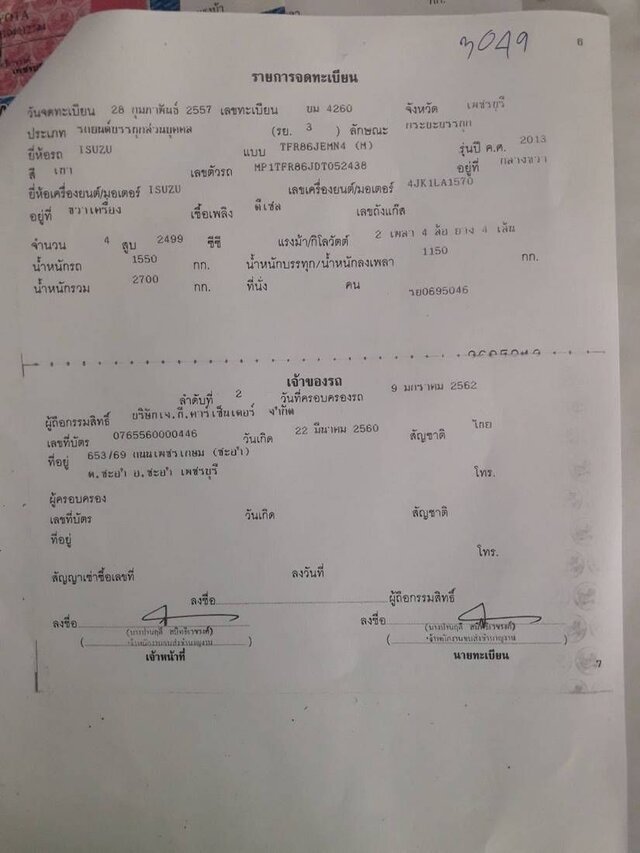 3049
6
รายการจดทะเบียน
วันจดทะเบียน 28 กุมภาพันธ์ 2557 เลขทะเบียน ขม 4260 จังหวัด เพชรบุรี
ประเภท รถยนต์บรรทุกส่วนบุคคล (รย. 3 ) ลักษณะ กระบะบรรทุก
ยี่ห้อรถ ISUZU แบบ TFR86JEMN4 (M) รุ่นปี ค.ศ. 2013
สี เทา เลขตัวรถ MP1TFR86JDT052438 อยู่ที่ กลางขวา
ยี่ห้อเครื่องยนต์/มอเตอร์ ISUZU เลขเครื่องยนต์/มอเตอร์ 4JK1LA1570
อยู่ที่ ขวาเครื่อง เชื้อเพลิง ดีเซล เลขถังแก๊ส
จำนวน 4 สูบ 2499 ซีซี แรงม้า/กิโลวัตต์ 2 เพลา 4 ล้อ ยาง 4 เส้น
น้ำหนักรถ 1550 กก. น้ำหนักบรรทุก/น้ำหนักลงเพลา 1150 กก.
น้ำหนักรวม 2700 กก. ที่นั่ง คน รย0695046
เจ้าของรถ
ลำดับที่ 2 วันที่ครอบครองรถ 9 มกราคม 2562
ผู้ถือกรรมสิทธิ์ บริษัทเจ.ที.คาร์เซ็นเตอร์ จำกัด
เลขที่บัตร 0765560000446 วันเกิด 22 มีนาคม 2560 สัญชาติ ไทย
ที่อยู่ 653/69 ถนนเพชรเกษม (ชะอำ)
ต.ชะอำ อ.ชะอำ เพชรบุรี โทร.
ผู้ครอบครอง
เลขที่บัตร วันเกิด สัญชาติ
ที่อยู่
โทร.
สัญญาเช่าซื้อเลขที่ ลงวันที่
ลงชื่อ ผู้ถือกรรมสิทธิ์
ลงชื่อ ลงชื่อ
เจ้าหน้าที่ นายทะเบียน
7